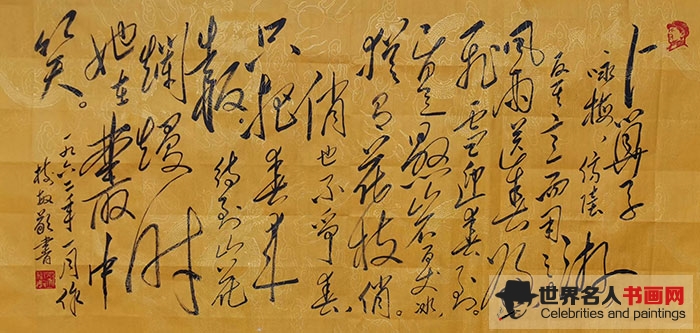 卜算子
咏梅、仿陸游
反其意而用之
风雨送春归
飛雪迎春到。
已是悬岩百丈冰
犹有花枝俏。
俏也不争春
只把春来
報。待到山花
爛熳时
她在叢中
笑。
一九六二年一月作
書
世界名人书画网
Celebrities and paintings